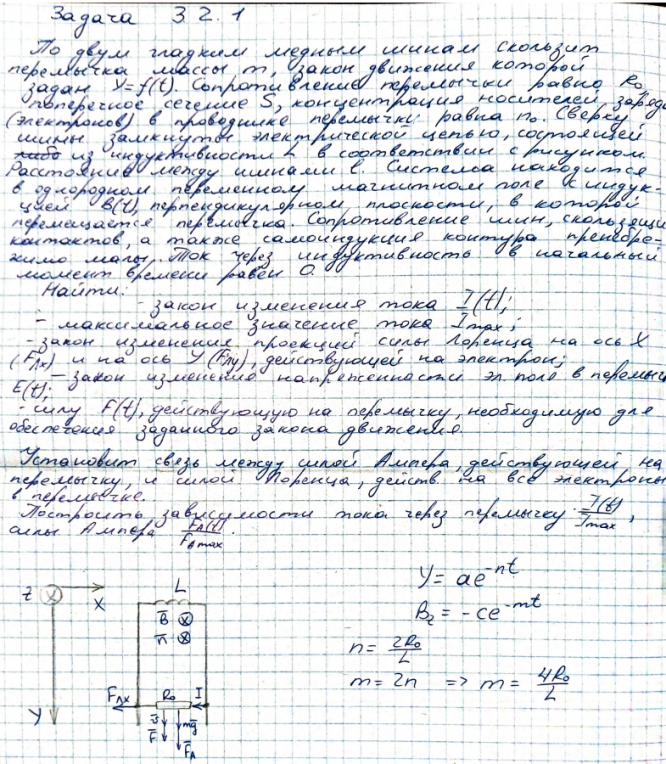 Задача 3 2. 1
По двум гладким медным шинам скользит
перемычка массы m, закон движения которой
задан Y=f(t). Сопротивление перемычки равно R₀,
поперечное сечение S, концентрация носителей заряда
(электронов) в проводнике перемычки равна n₀. Сверху
шины замкнуты электрической цепью, состоящей
из индуктивности L в соответствии с рисунком.
Расстояние между шинами l. Система находится
в однородном переменном магнитном поле с индук-
цией B(t), перпендикулярном плоскости, в которой
перемещается перемычка. Сопротивление шин, скользящих
контактов, а также самоиндукция контура пренебре-
жимо малы. Ток через индуктивность в начальный
момент времени равен 0.
Найти:
- закон изменения тока I(t);
- максимальное значение тока Imax;
- закон изменения проекций силы Лоренца на ось X
(Fлx) и на ось Y (Fлy), действующей на электрон;
- закон изменения напряженности эл. поле в перемычке
E(t);
- силу F(t), действующую на перемычку, необходимую для
обеспечения заданного закона движения.
Установит связь между силой Ампера, действующей на
перемычку, и силой Лоренца, действ на все электроны
в перемычке.
Построить зависимости тока через перемычку I(t)/Imax,
силы Ампера FA(t)/FAmax.
Y = ae^-nt
Bz = -ce^-mt
n = 2R₀/L
m = 2n => m = 4R₀/L
Z X L
B
n
Fлx R₀ I
Y F mg
FA